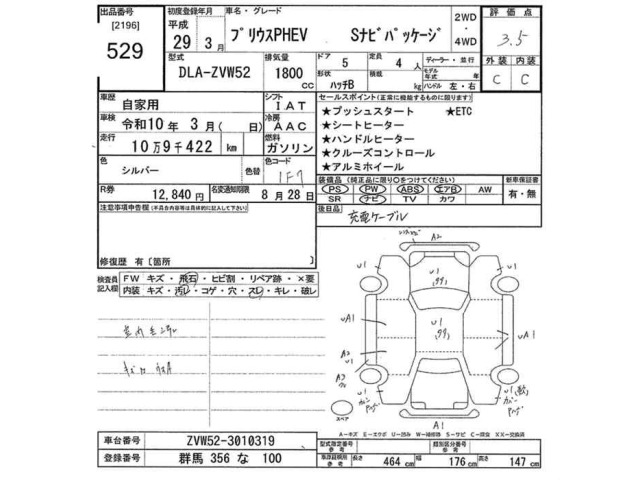 出品番号 初度登録年月 車名・グレード 2WD ・ 4WD 評価点
[2196] 529
平成 29年 3月 プリウスPHEV Sナビパッケージ 3.5
型式 DLA-ZVW52 排気量 1800 CC
ドア 5 定員 4人 ディーラー・並行
形状 ハッチB 積載 kg モデル年式 年 ハンドル 左・右
外装 内装
C C
車歴 自家用 シフト IAT
車検 令和10年 3月( 日) 冷房 AAC
走行 10万9千422 km 燃料 ガソリン
色 シルバー 色替 色コード 1F7
R券 12,840円 名変通知期限 8月28日
セールスポイント(正常に機能するものに限ります)
★プッシュスタート ★ETC
★シートヒーター
★ハンドルヒーター
★クルーズコントロール
★アルミホイール
装備品(純正品に限り○をつけてください) 新車保証書
PS PW ABS エアB AW 有・無
SR ナビ TV カワ
後日品 充電ケーブル
注意事項申告欄(不具合内容等は具体的に記入して下さい)
修復歴 有[箇所 ]
検査員記入欄
FW キズ・飛石・ヒビ割・リペア跡・×要
内装 キズ・汚レ・コゲ・穴・スレ・キレ・破レ
A2
U1
U1
U1
UA1
UA1
U1
A2
U1
U1
U1
A1
スペア
A-キズ E-エクボ U-凹み W-補修跡 S-サビ C-腐食 XX-交換済
車台番号 ZVW52-3010319
登録番号 群馬 356 な 100
型式指定番号 参考 類別区分番号 参考
車詳証明用 参考 長さ 464 cm 幅 176 cm 高さ 147 cm